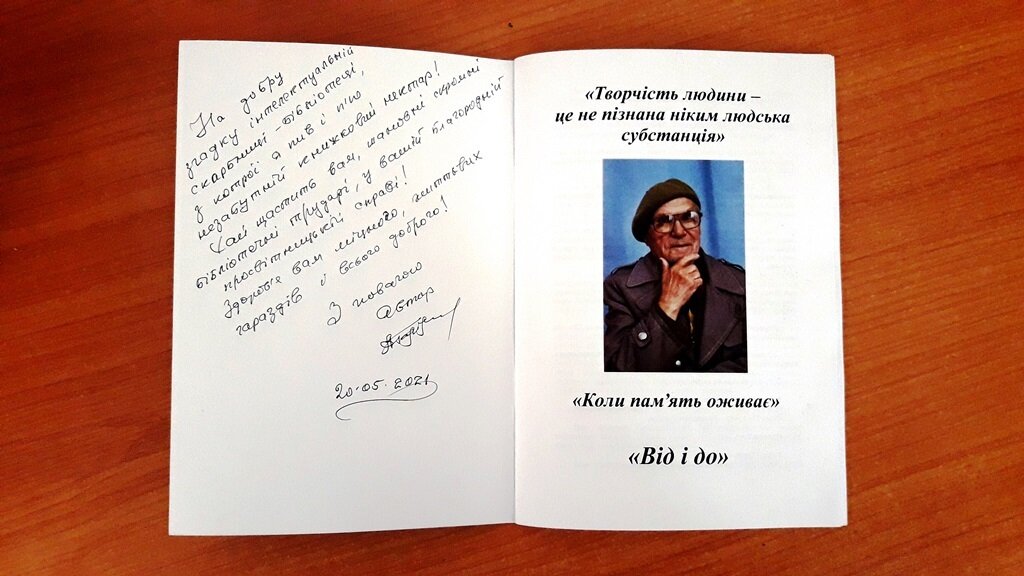 На добру
згадку інтелектуальній
скарбниці - бібліотеці,
з котрої я пив і п'ю
незабутній книжковий нектар!
Хай щастить вам, шановні скромні
бібліотечні трударі, у вашій благородній
просвітницькій справі!
Здоров'я вам міцного, життєвих
гараздів і всього доброго!
З повагою
Автор
20.05.2021
«Творчість людини –
це не пізнана ніким людська
субстанція»
«Коли пам’ять оживає»
«Від і до»